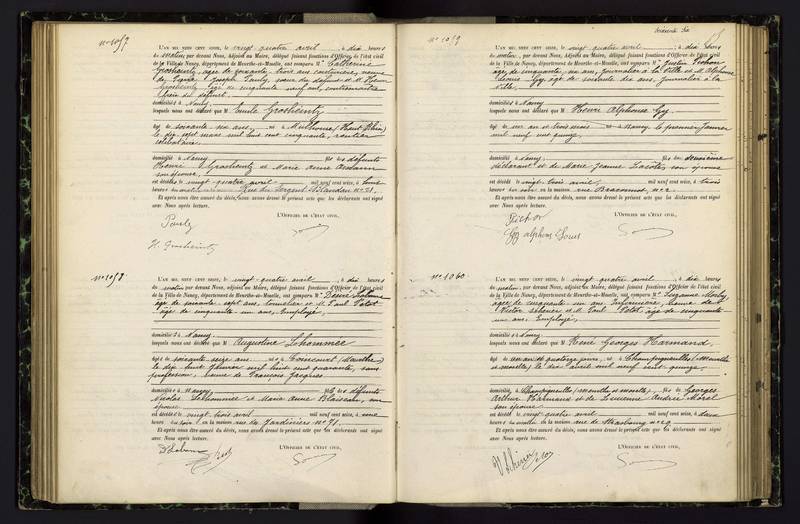 N° 1057
L'AN MIL NEUF CENT SEIZE, le vingt quatre avril, à dix heures
du matin, par devant Nous, Adjoint au Maire, délégué faisant fonctions d'Officier de l'état civil
de la Ville de Nancy, département de Meurthe-et-Moselle, ont comparu Mme Catherine
Grosheintz, âgée de soixante trois ans, couturière, veuve
de Joseph Pauly, sœur du défunt et M. Henri
Grosheintz âgé de cinquante neuf ans, contremaître
frère du défunt.
domiciliés à Nancy
lesquels nous ont déclaré que M Emile Grosheintz
âgé de soixante six ans, né à Mulhouse (Haut Rhin)
le dix sept mars mil huit cent cinquante, rentier
célibataire.
domicilié à Nancy fils des défunts
Henri Grosheintz et Marie Anne
son épouse,
est décédé le vingt quatre avril mil neuf cent seize, à
heures du matin, Rue du Sergent Blandan n° 21.
Et après nous être assuré du décès, nous avons dressé le présent acte que les déclarants ont signé
avec Nous après lecture.
L'OFFICIER DE L'ÉTAT CIVIL,
Pauly
H. Grosheintz
N° 1058
L'AN MIL NEUF CENT SEIZE, le vingt quatre avril, à dix heures
du matin, par devant Nous, Adjoint au Maire, délégué faisant fonctions d'Officier de l'état civil
de la Ville de Nancy, département de Meurthe-et-Moselle, ont comparu M. Désiré
âgé de soixante sept ans, tonnelier et M. Paul
âgé de cinquante un ans, Employé,
domiciliés à Nancy
lesquels nous ont déclaré que M Augustine Lhommée
âgée de soixante seize ans née à Loincourt (Meurthe)
le dix huit janvier mil huit cent quarante, sans
profession, veuve de François Jacques
domiciliée à Nancy fille des défunts
Nicolas Lhommée et Marie Anne Blaiseau, son
épouse
est décédée le vingt trois avril mil neuf cent seize, à onze
heures du soir, en la maison rue des Jardiniers n° 71.
Et après nous être assuré du décès, nous avons dressé le présent acte que les déclarants ont signé
avec Nous après lecture.
L'OFFICIER DE L'ÉTAT CIVIL,
N° 1059
L'AN MIL NEUF CENT SEIZE, le vingt quatre avril, à dix heures
du matin, par devant Nous, Adjoint au Maire, délégué faisant fonctions d'Officier de l'état civil
de la Ville de Nancy, département de Meurthe-et-Moselle, ont comparu M. Justin
âgé de cinquante un ans, journalier à la Ville et M. Alphonse
Louis Gy âgé de soixante dix ans, journalier à la
Ville.
domiciliés à Nancy
lesquels nous ont déclaré que M Henri Alphonse Gy
âgé de un an et trois mois né à Nancy le premier Janvier
mil neuf cent quinze
domicilié à Nancy, fils du deuxième
déclarant et de Marie Jeanne Lacôte, son épouse
est décédé le vingt trois avril mil neuf cent seize, à trois
heures du soir, en la maison rue Braconnot n° 2.
Et après nous être assuré du décès, nous avons dressé le présent acte que les déclarants ont signé
avec Nous après lecture.
L'OFFICIER DE L'ÉTAT CIVIL,
Gy alphonse Louis
N° 1060
L'AN MIL NEUF CENT SEIZE, le vingt quatre avril, à dix heures
du matin, par devant Nous, Adjoint au Maire, délégué faisant fonctions d'Officier de l'état civil
de la Ville de Nancy, département de Meurthe-et-Moselle, ont comparu Mme Suzanne
âgée de cinquante six ans, infirmière, veuve de
Victor et M. Paul âgé de cinquante
un ans, Employé,
domiciliés à Nancy
lesquels nous ont déclaré que M René Georges Harmand,
âgé de un an et quatorze jours, né à Champigneulles (Meurthe
et Moselle), le dix avril mil neuf cent quinze,
domicilié à Champigneulles (Meurthe et Moselle), fils de Georges
Arthur Harmand et de Lucienne Andrée Morel
son épouse
est décédé le vingt quatre avril mil neuf cent seize, à deux
heures du matin en la maison rue de Strasbourg n° 29
Et après nous être assuré du décès, nous avons dressé le présent acte que les déclarants ont signé
avec Nous après lecture.
L'OFFICIER DE L'ÉTAT CIVIL,